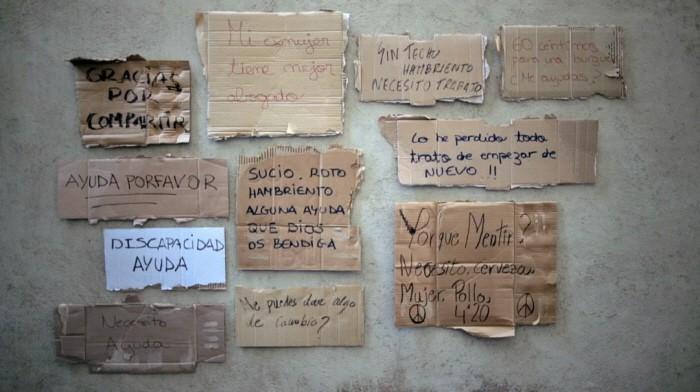 GRACIAS
POR
COMPARTIR
Mi exmujer
tiene mejor
abogado
SIN TECHO
HAMBRIENTO
NECESITO TRABAJO
60 centimos
para una burguer
¿Me ayudas?
AYUDA PORFAVOR
SUCIO, ROTO
HAMBRIENTO
ALGUNA AYUDA
QUE DIOS
OS BENDIGA
Lo he perdido todo
trato de empezar de
NUEVO !!
DISCAPACIDAD
AYUDA
¿Porque Mentir?
Necesito, cerveza,
Mujer, Pollo,
4:20
Necesito
Ayuda
Me puedes dar algo
de cambio?